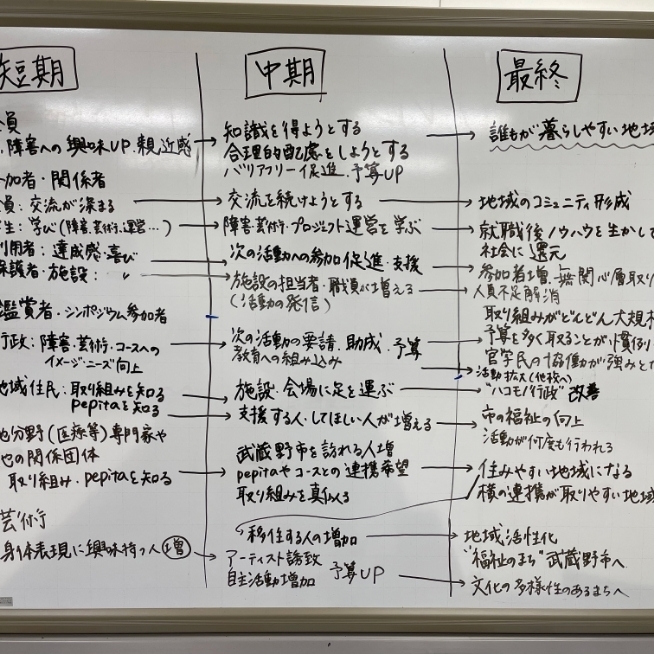 短期
員
障害への興味UP.親近感
加者・関係者
員:交流が深まる
生:学び(障害.芸術.運営...)
利用者:達成感・喜び
保護者・施設: 〃
鑑賞者・シンポジウム参加者
行政:障害.芸術.コースへの
イメージ・ニーズ向上
地域住民:取り組みを知る
pepitaを知る
他分野(医療等)専門家や
他の関係団体
取り組み.pepitaを知る
芸術
身体表現に興味持つ人 増
中期
知識を得ようとする
合理的配慮をしようとする
バリアフリー促進.予算UP
交流を続けようとする
障害・芸術・プロジェクト運営を学ぶ
次の活動への参加促進・支援
施設の担当者・職員が増える
(活動の発信)
次の活動の要請.助成.予算
教育への組み込み
施設.会場に足を運ぶ
支援する人・してほしい人が増える
武蔵野市を訪れる人増
pepitaやコースとの連携希望
取り組みを真似る
移住する人の増加
アーティスト誘致
自主活動増加 予算UP
最終
誰もが暮らしやすい地域
地域のコミュニティ形成
就職後ノウハウを生かして
社会に還元
参加者増.無関心層取り
人員不足解消
取り組みがどんどん大規模
予算を多く取ることが慣例
官学民の協働が強みと
活動拡大(他校へ)
"ハコモノ行政"改善
市の福祉の向上
活動が何度も行われる
住みやすい地域になる
横の連携が取りやすい地域
地域活性化
"福祉のまち"武蔵野市へ
文化の多様性のあるまちへ